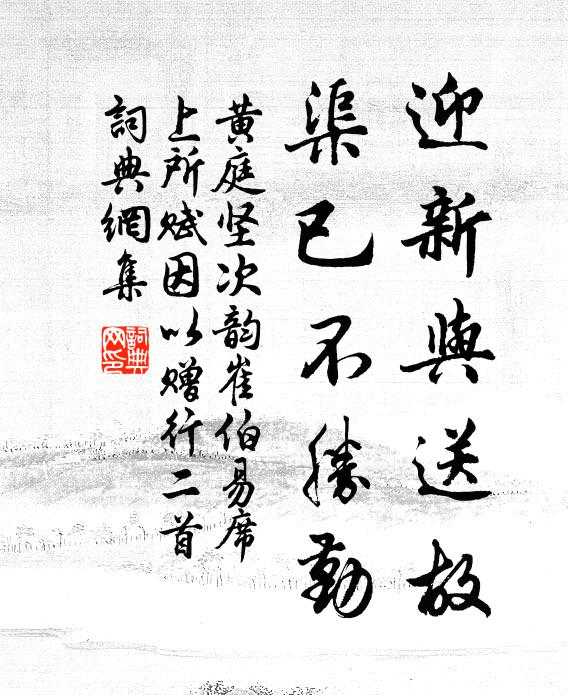 迎新與送故
渠已不勝勤
黄庭坚次韵崔伯易席
上所赋因以赠行二首
詞典網集
詞典网印